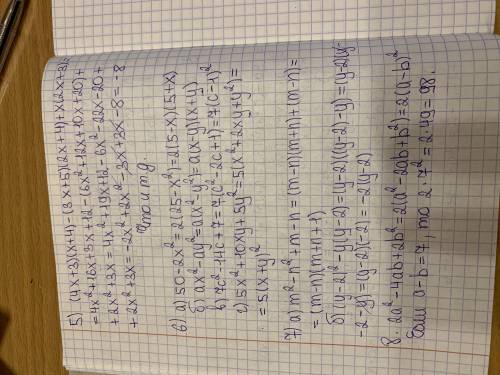 5) (4x+3)(x+4)-(3x+5)(2x+4)+x(2x+3)=
=4x²+16x+3x+12-(6x²+12x+10x+20)+
+2x²+3x=4x²+19x+12-6x²-22x-20+
+2x²+3x=-2x²+2x²-3x+3x-8=-8
что и т д
6) а) 50-2x²=2(25-x²)=2(5-x)(5+x)
б) ax²-ay²=a(x²-y²)=a(x-y)(x+y)
в) 7c²-14c+7=7(c²-2c+1)=7(c-1)²
г) 5x²+10xy+5y²=5(x²+2xy+y²)=
=5(x+y)²
7) а) m²-n²+m-n=(m-n)(m+n)+(m-n)=
=(m-n)(m+n+1)
б) (y-2)²-y(y-2)=(y-2)((y-2)-y)=(y-2)(y-
-2-y)=(y-2)(-2)=-2(y-2)
8. 2a²-4ab+2b²=2(a²-2ab+b²)=2(a-b)²
Если a-b=7, то 2·7²=2·49=98.